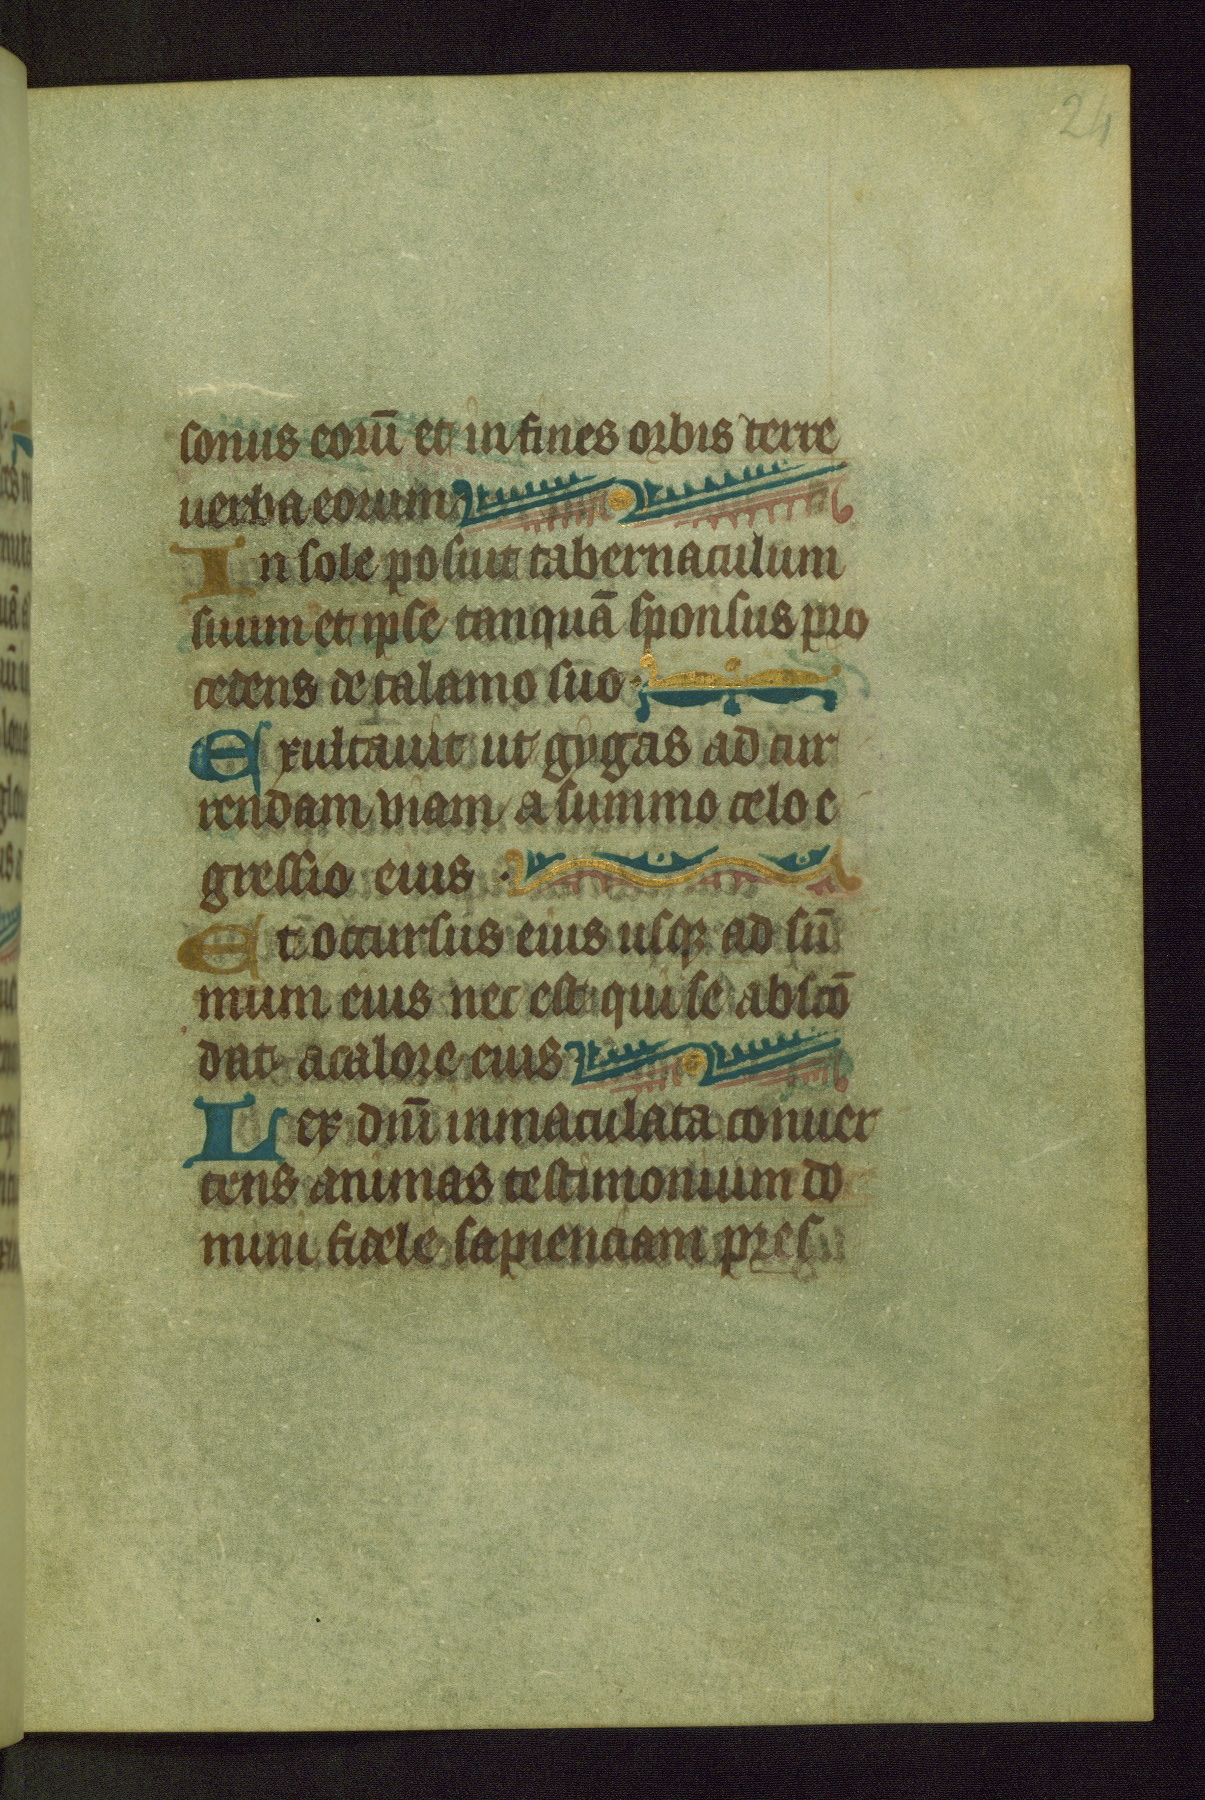 24
sonus eoru̅ et in fines orbis terre
uerba eorum
In sole posuit tabernaculum
suum et ipse tanqua̅ sponsus pro
cedens de talamo suo.
Exultauit ut gygas ad cur
rendam uiam a summo celo e
gressio eius .
Et occursus eius usqꝫ ad su̅
mum eius nec est qui se absco̅
dat a calore eius
Lex dni̅ inmaculata conuer
tens animas testimonium do
mini fidele sapienciam pres